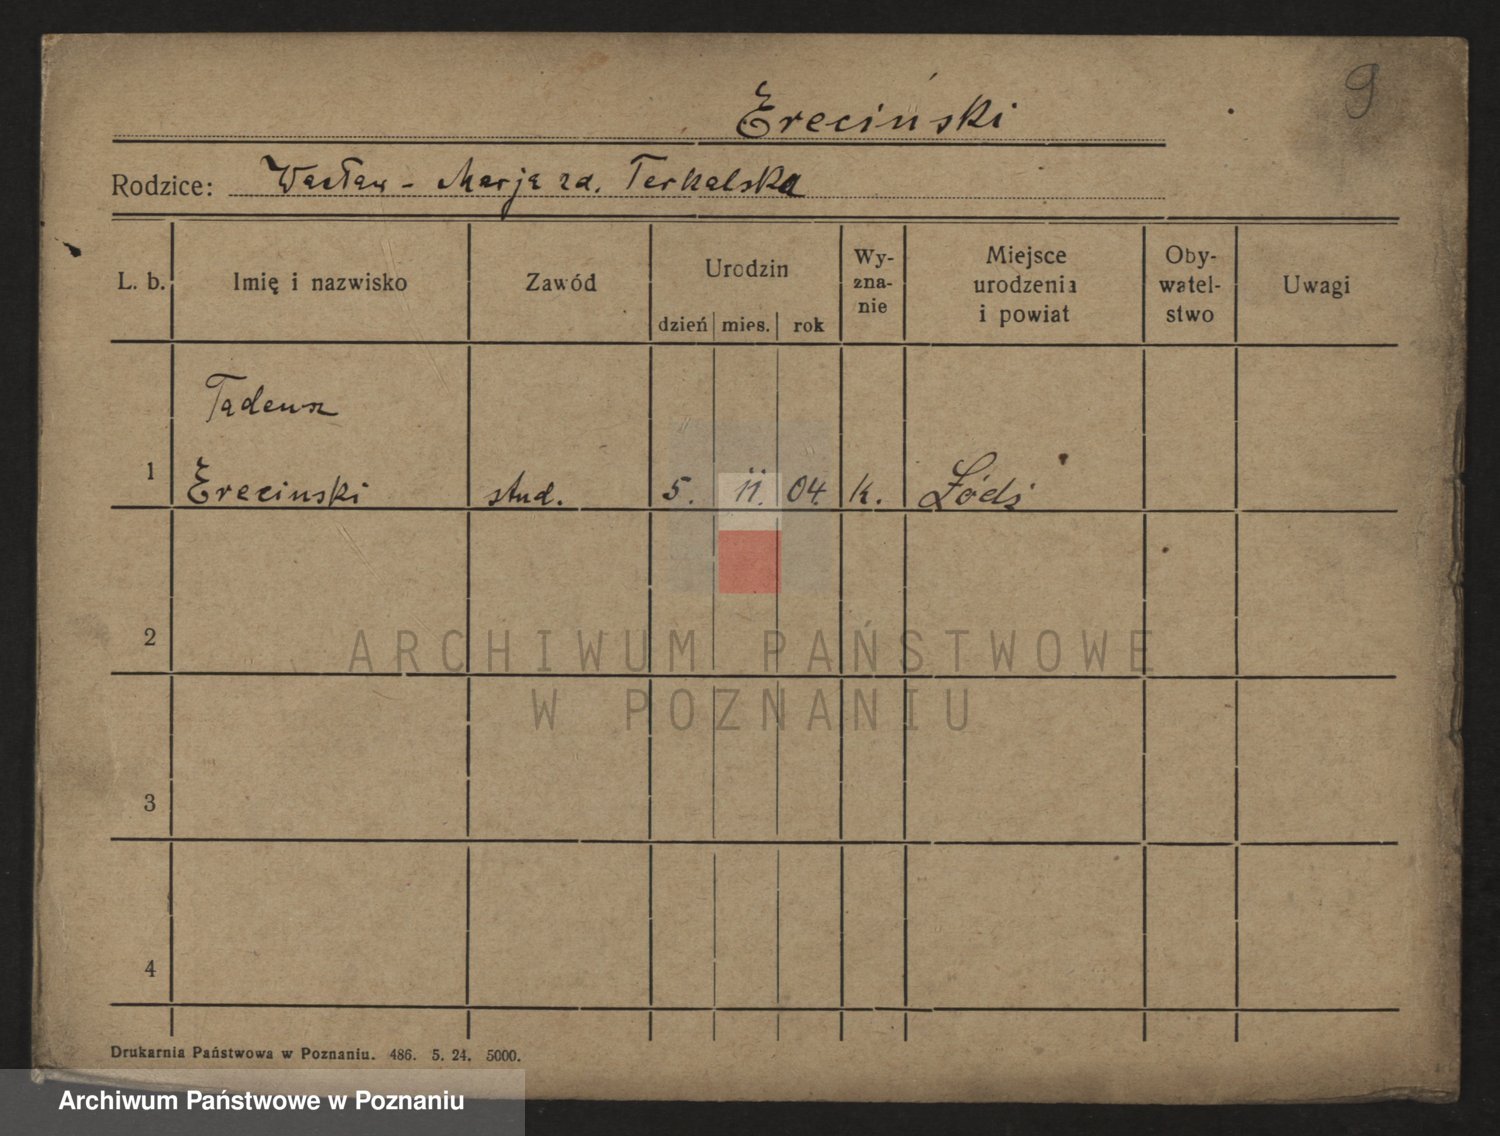 9
Ereciński
Rodzice: Wacław - Marja zd. Terkalska
L. b. Imię i nazwisko Zawód Urodzin dzień mies. rok Wy-zna-nie Miejsce urodzenia i powiat Oby-watel-stwo Uwagi
Tadeusz
1 Erecinski stud. 5. 11. 04 k. Łódź
2
ARCHIWUM PAŃSTWOWE
W POZNANIU
3
4
Drukarnia Państwowa w Poznaniu. 486. 5. 24. 5000.
Archiwum Państwowe w Poznaniu